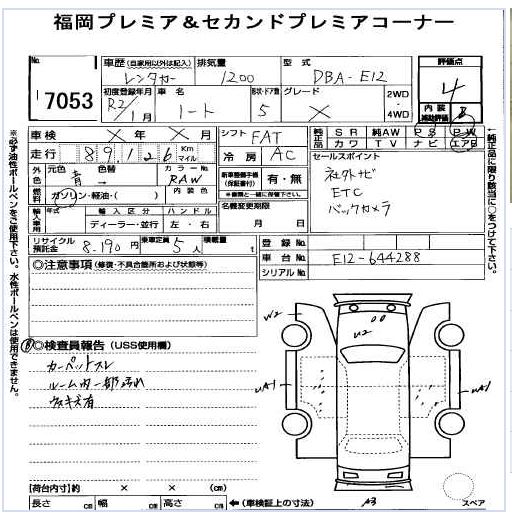 福岡プレミア&セカンドプレミアコーナー
No.
17053
車歴 (自家用以外は記入)
レンタカー
排気量
1200
型式
DBA-E12
評価点
4
初度登録年月
R2/1月
車名
ノート
形状・ドア数
5
グレード
X
2WD
・
4WD
内装
補助評価
B
車検 × 年 × 月
シフト FAT
純正品 SR 純AW PS PW
カワ TV ナビ エアB
走行 89,126 Km マイル
冷房 AC
セールスポイント
社外ナビ
ETC
バックカメラ
外色 元色 青 色替 → カラーNo. RAW
新車整備手帳
(保証書付)
有・無
燃料 ガソリン・軽油・( ) 内装色
輸入車用 年式 輸入区分 ハンドル
ディーラー・並行 左・右
名義変更期限
月 日
リサイクル預託金 8,190円 乗車定員 5人 積載量 t
登録No.
車台No. E12-644288
シリアルNo.
※必ず油性ボールペンをご使用下さい。水性ボールペンは使用できません。
↑純正品に限り該当に○をつけて下さい。
◎注意事項 (修復・不具合箇所および状態等)
B ◎検査員報告 (USS使用欄)
カーペットスレ
ルーム内一部汚れ
ウスキズ有
W2
U2
UA1
UA1
A3
スペア
【荷台内寸】約 × × (cm)
長さ cm 幅 cm 高さ cm ←(車検証上の寸法)